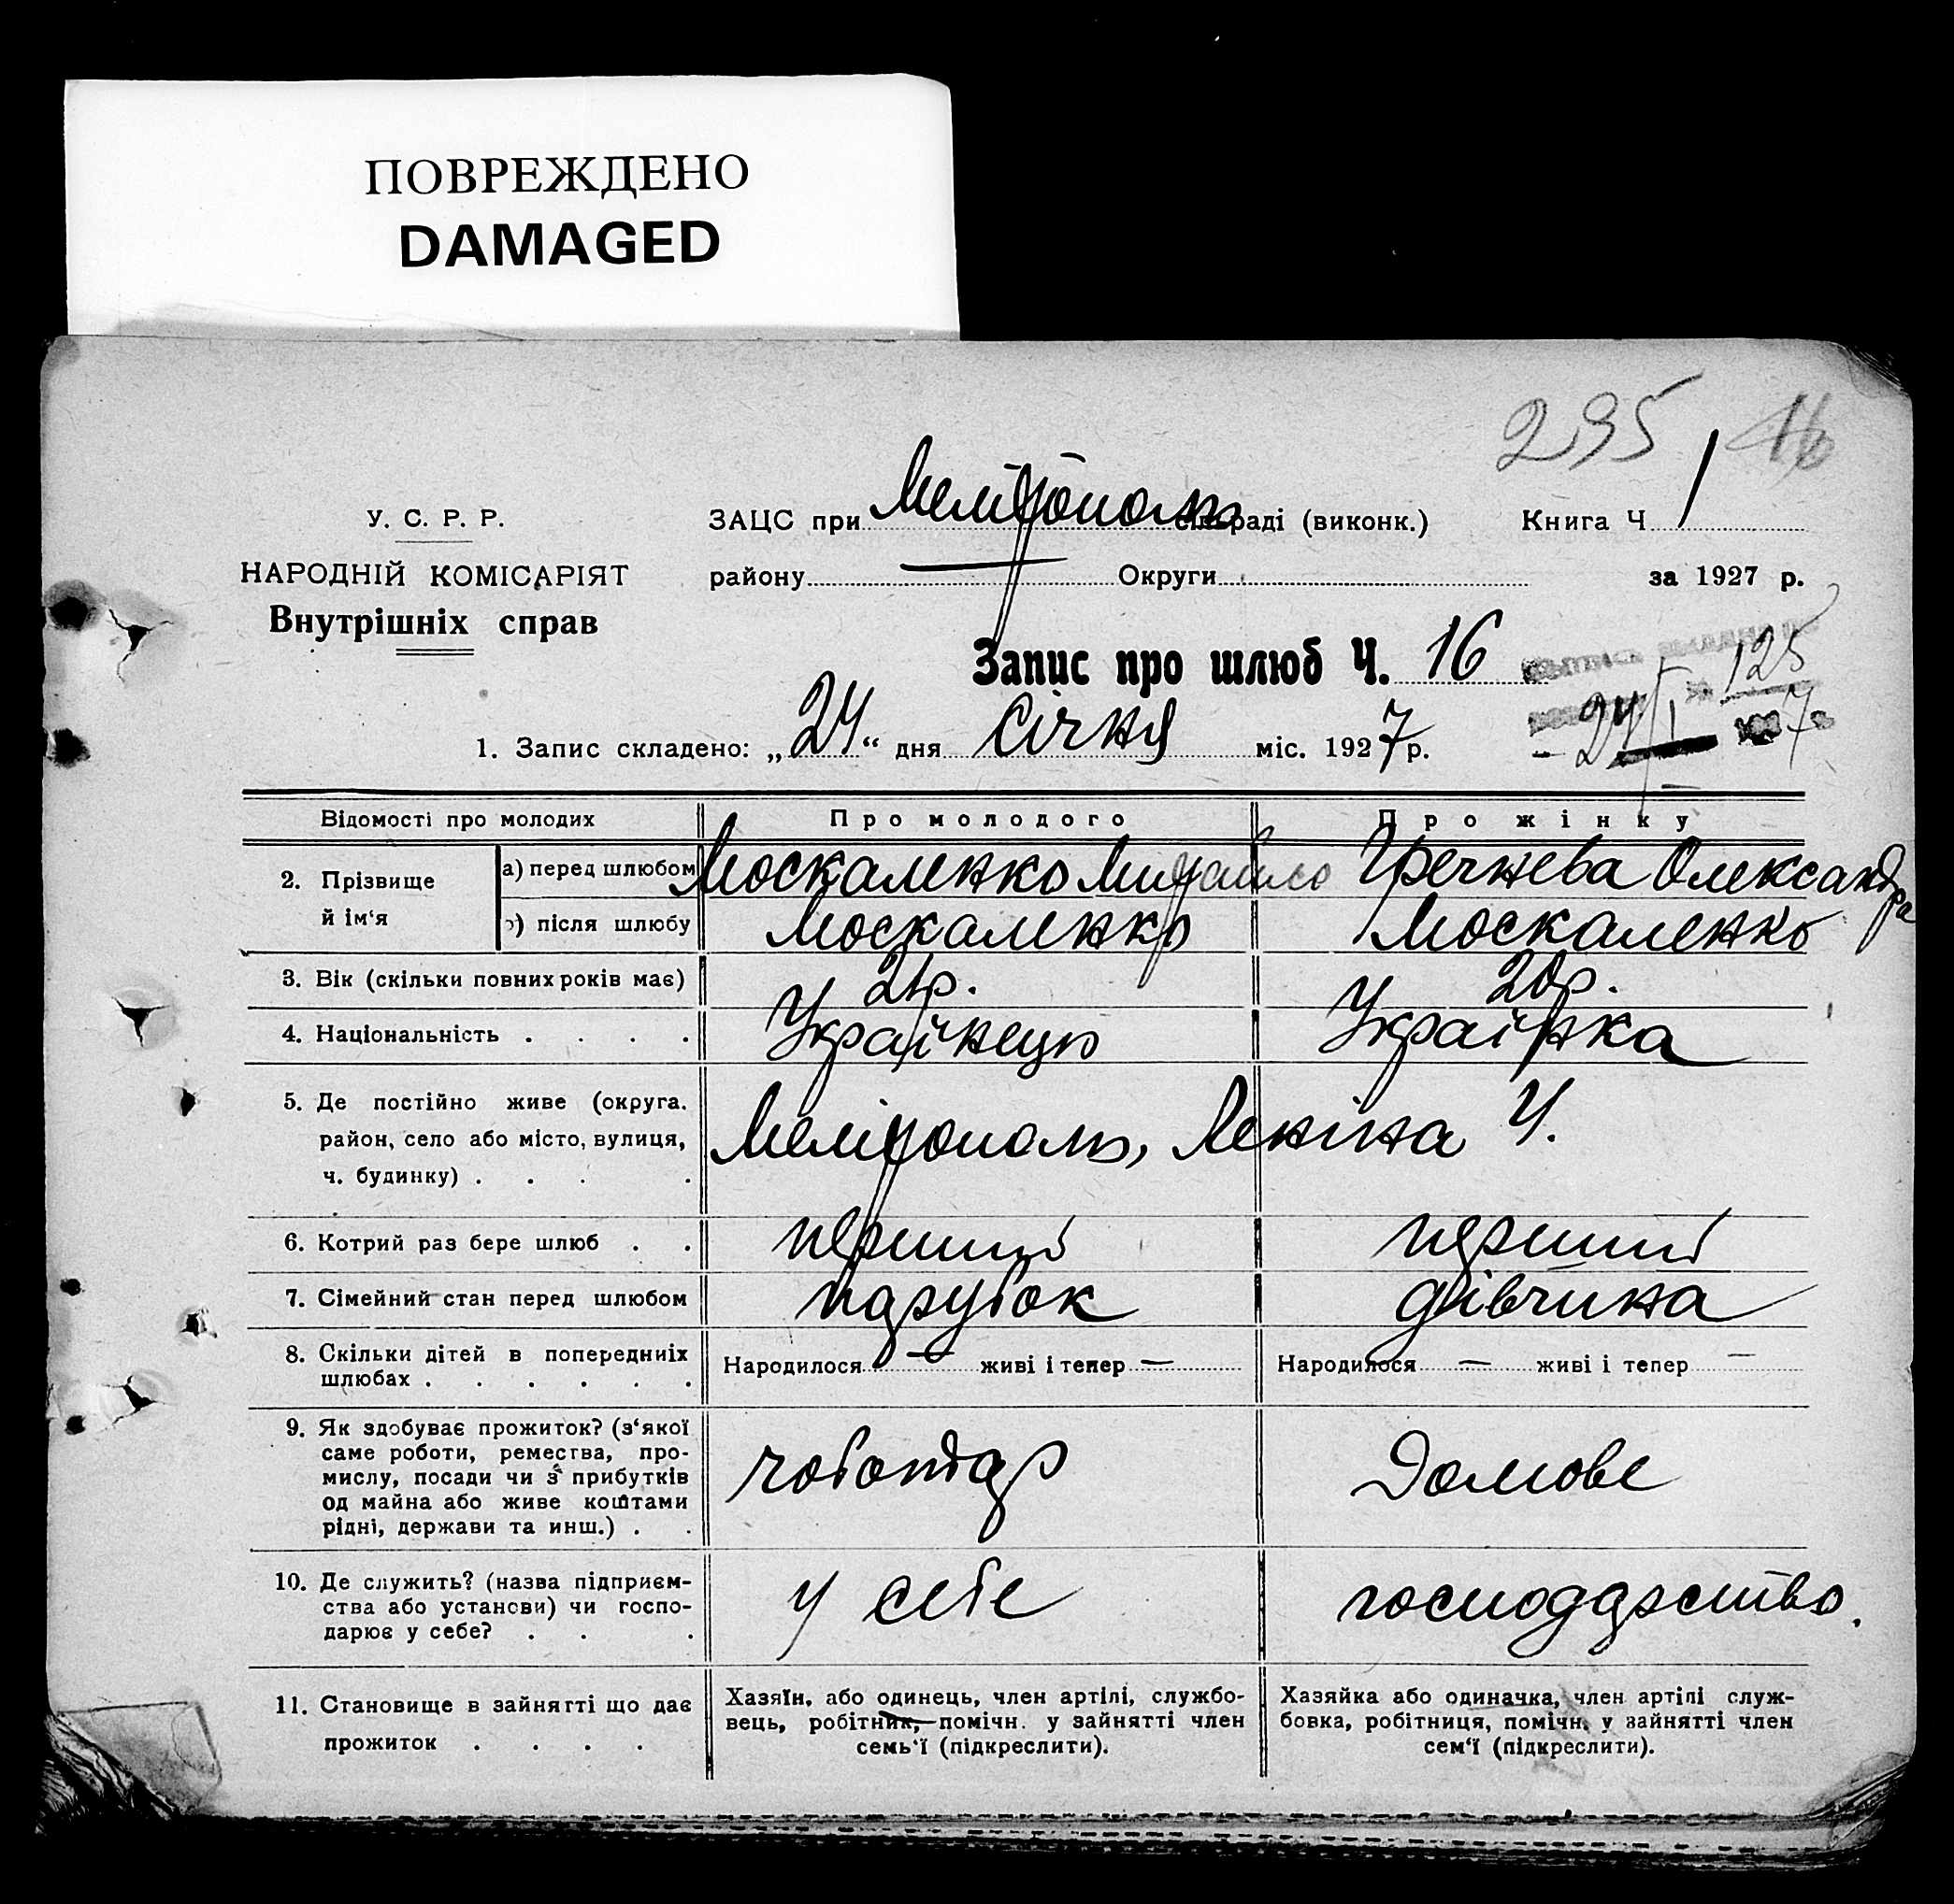 ПОВРЕЖДЕНО
DAMAGED
295 16
У. С. Р. Р.
НАРОДНІЙ КОМІСАРІЯТ
Внутрішніх справ
ЗАЦС при Мелітополь сільраді (виконк.) Книга Ч. 1
району — Округи за 1927 р.
Запис про шлюб Ч. 16
125
24/I 1927
1. Запис складено: „24“ дня Січня міс. 1927 р.
Відомості про молодих Про молодого Про жінку
2. Прізвище й ім‘я
а) перед шлюбом Москаленко Михайло Гречнева Олександра
б) після шлюбу Москаленко Москаленко
3. Вік (скільки повних років має) 21р. 20р.
4. Національність . . . . Українець Українка
5. Де постійно живе (округа.
район, село або місто, вулиця,
ч. будинку) . . . .
Мелітополь, Леніна 4.
6. Котрий раз бере шлюб . . перший перший
7. Сімейний стан перед шлюбом парубок дівчина
8. Скільки дітей в попередніх
шлюбах . . . . . .
Народилося — живі і тепер — Народилося — живі і тепер —
9. Як здобуває прожиток? (з‘якої
саме роботи, ремества, про-
мислу, посади чи з прибутків
од майна або живе коштами
рідні, держави та инш.) . .
чоботар Домове
10. Де служить? (назва підприєм-
ства або установи) чи госпо-
дарює у себе? . . .
у себе господарство.
11. Становище в зайнятті що дає
прожиток . . . .
Хазяїн, або одинець, член артілі, службо-
вець, робітник, помічн. у зайнятті член
семь‘ї (підкреслити).
Хазяйка або одиначка, член артілі служ-
бовка, робітниця, помічн. у зайнятті член
сем‘ї (підкреслити).